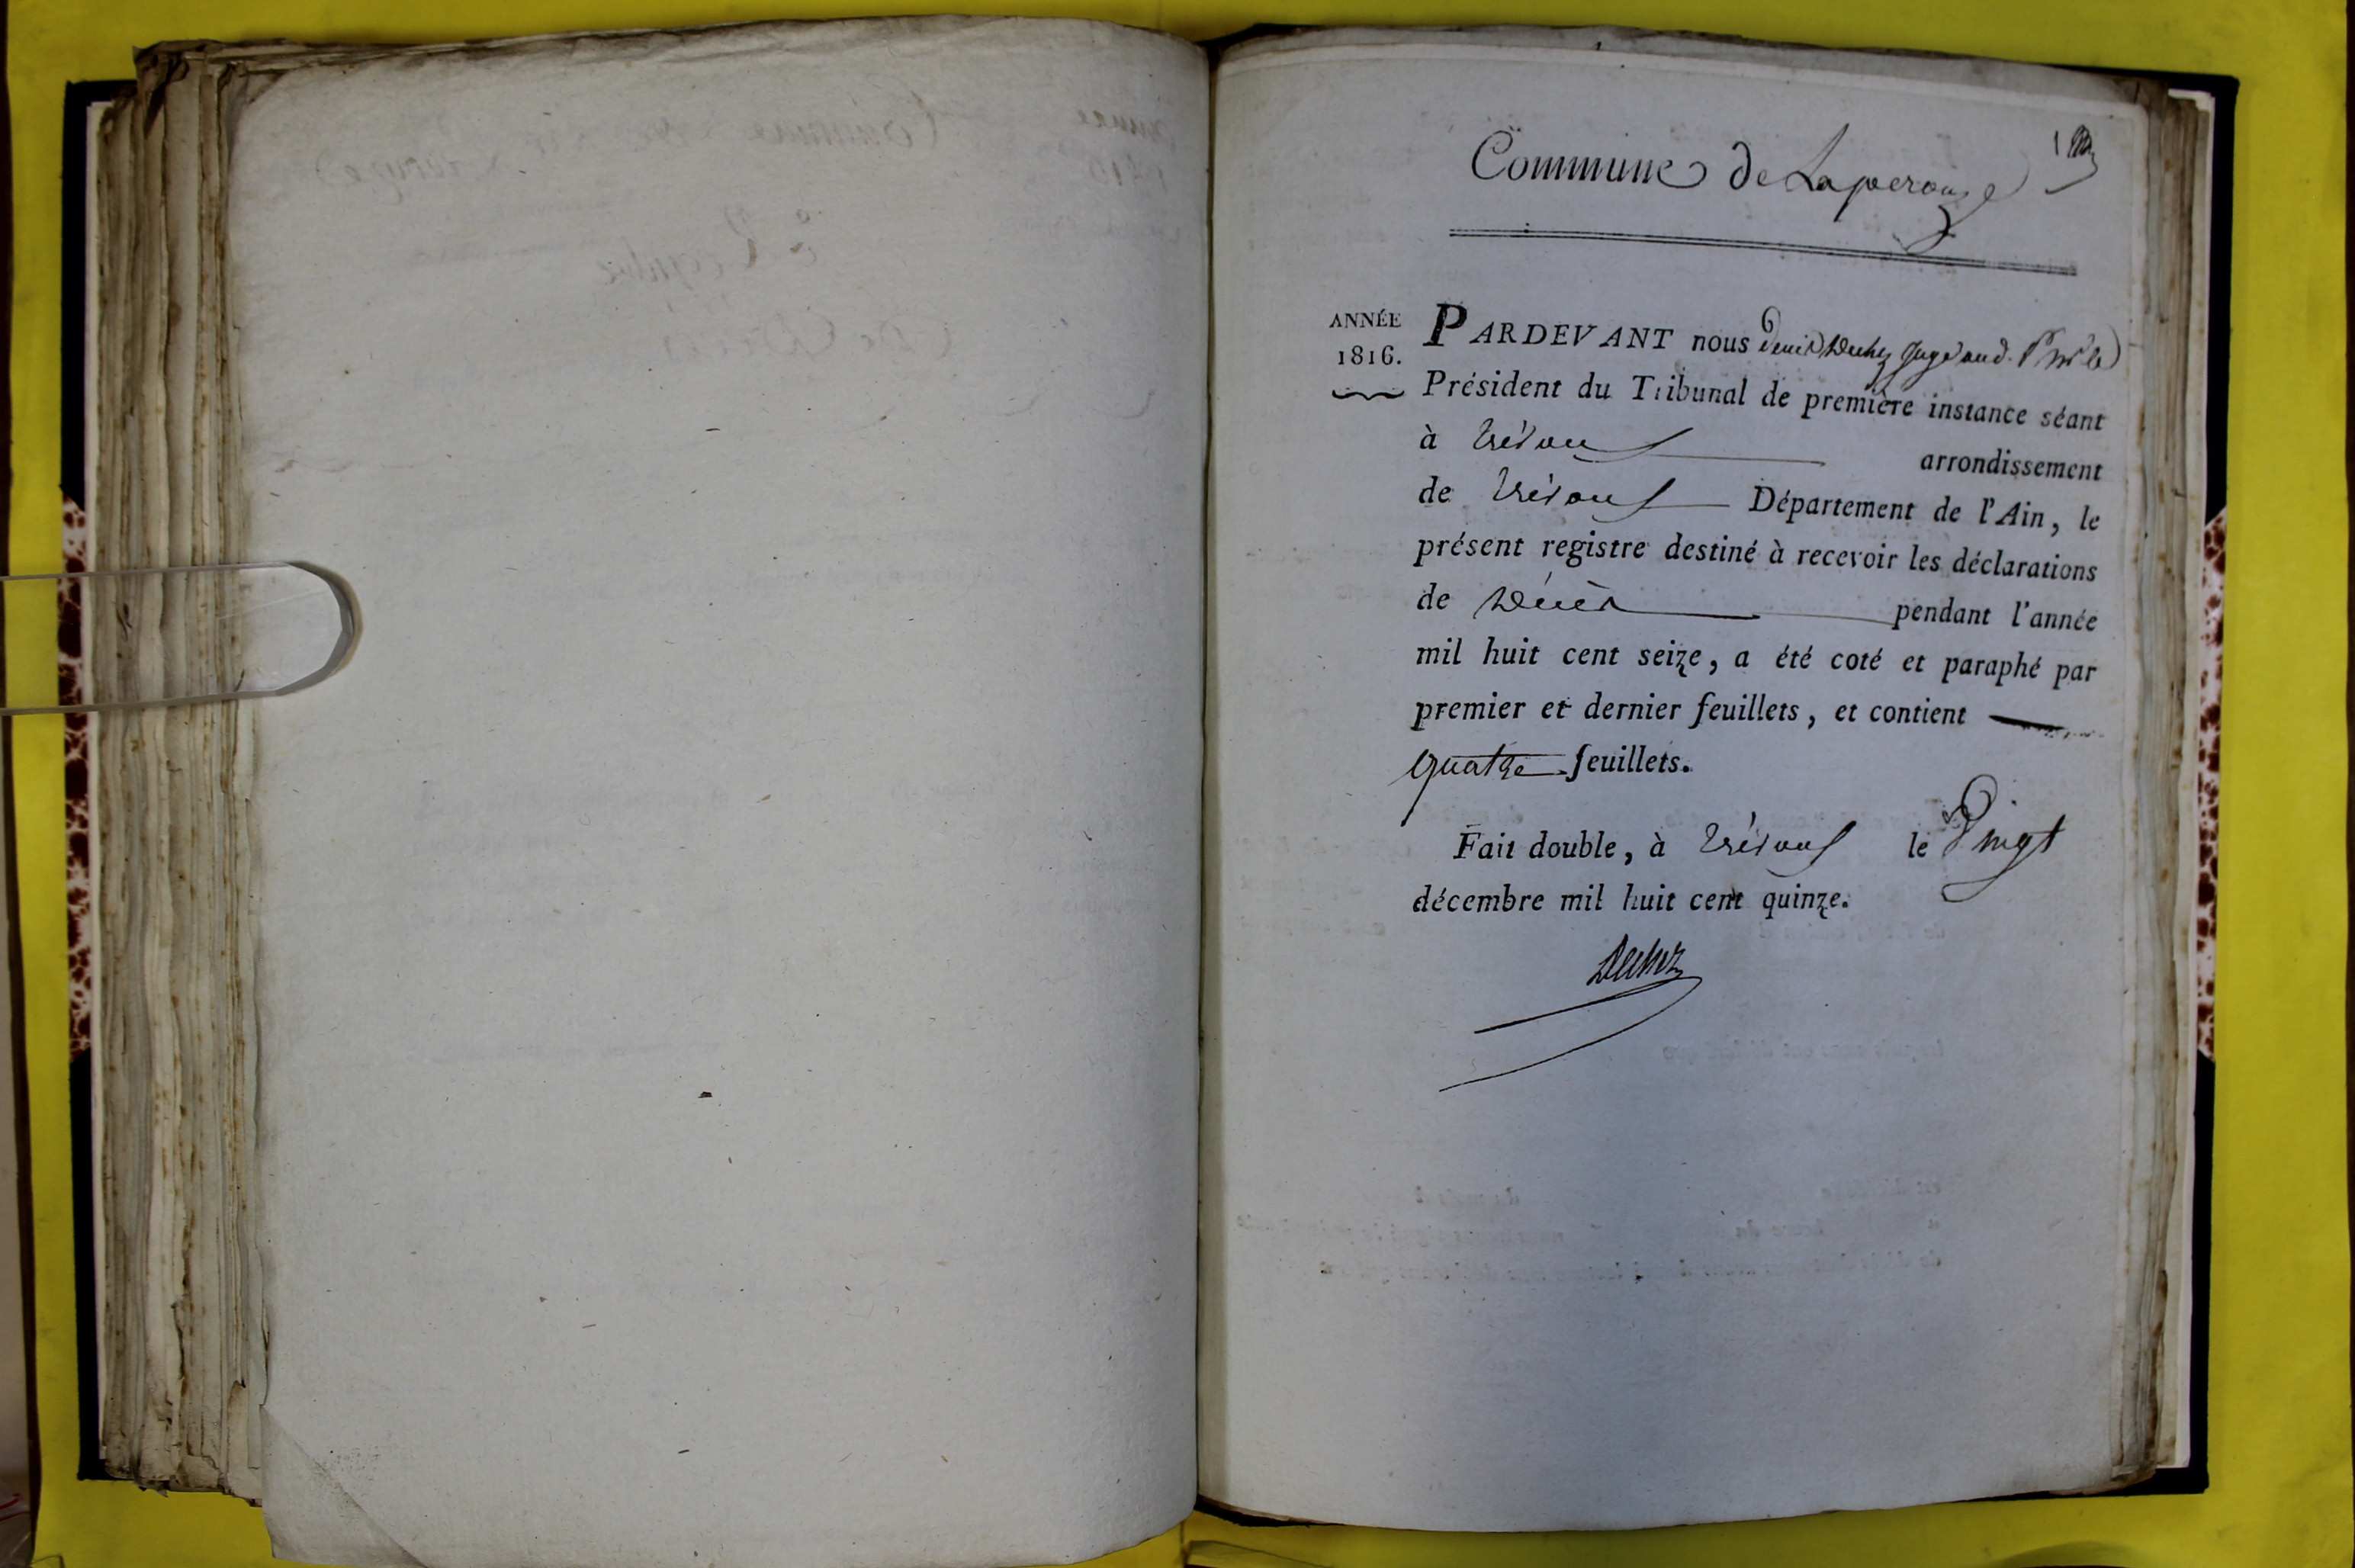 Commune de Laperouze
1
ANNÉE
1816.
PARDEVANT nous Denis Duchez Juge aud.
Président du Tribunal de première instance séant
à Trévoux arrondissement
de Trévoux Département de l'Ain, le
présent registre destiné à recevoir les déclarations
de Décès pendant l'année
mil huit cent seize, a été coté et paraphé par
premier et dernier feuillets, et contient
quatre feuillets.
Fait double, à Trévoux le Vingt
décembre mil huit cent quinze.
Duchez